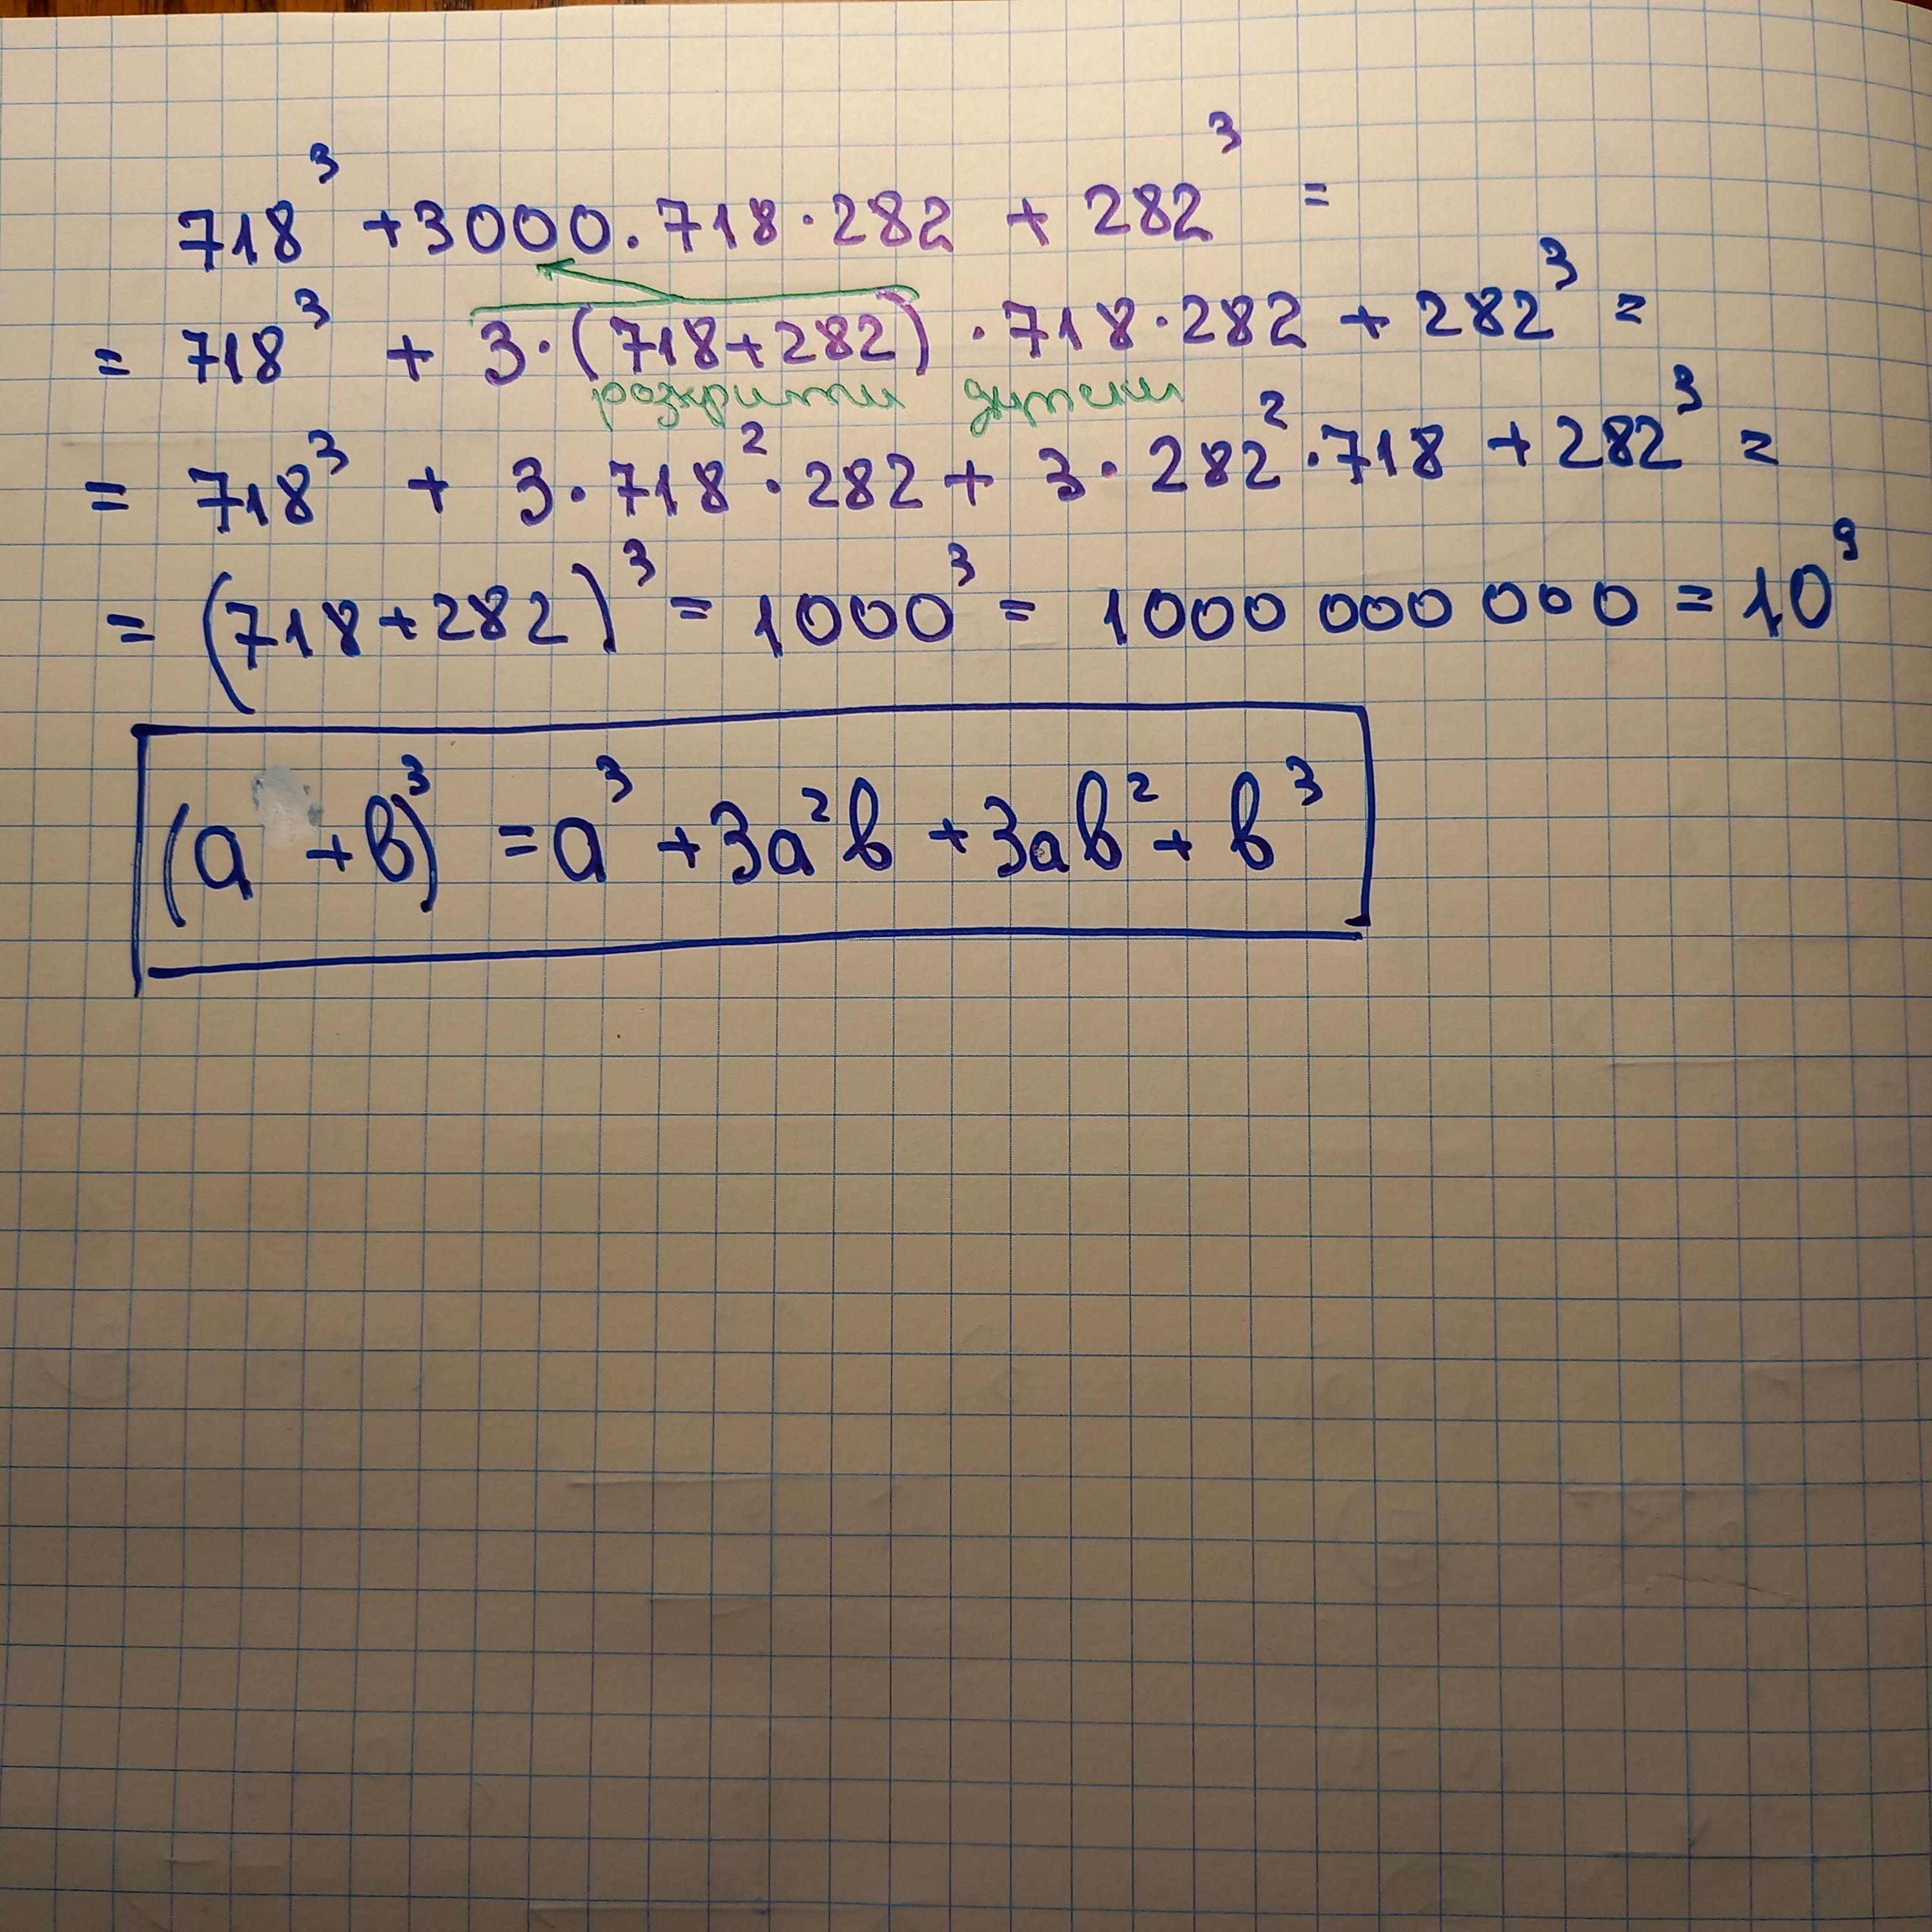 718³ + 3000 · 718 · 282 + 282³ =
= 718³ + 3 · (718 + 282) · 718 · 282 + 282³ =
розкрити дужки
= 718³ + 3 · 718² · 282 + 3 · 282² · 718 + 282³ =
= (718 + 282)³ = 1000³ = 1000 000 000 = 10⁹
(a + b)³ = a³ + 3a²b + 3ab² + b³